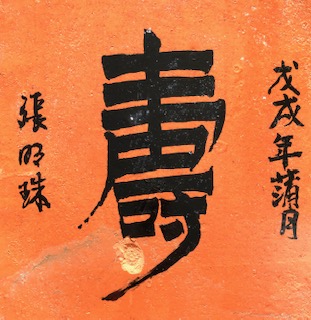 戊戌年蒲月
壽
張明珠